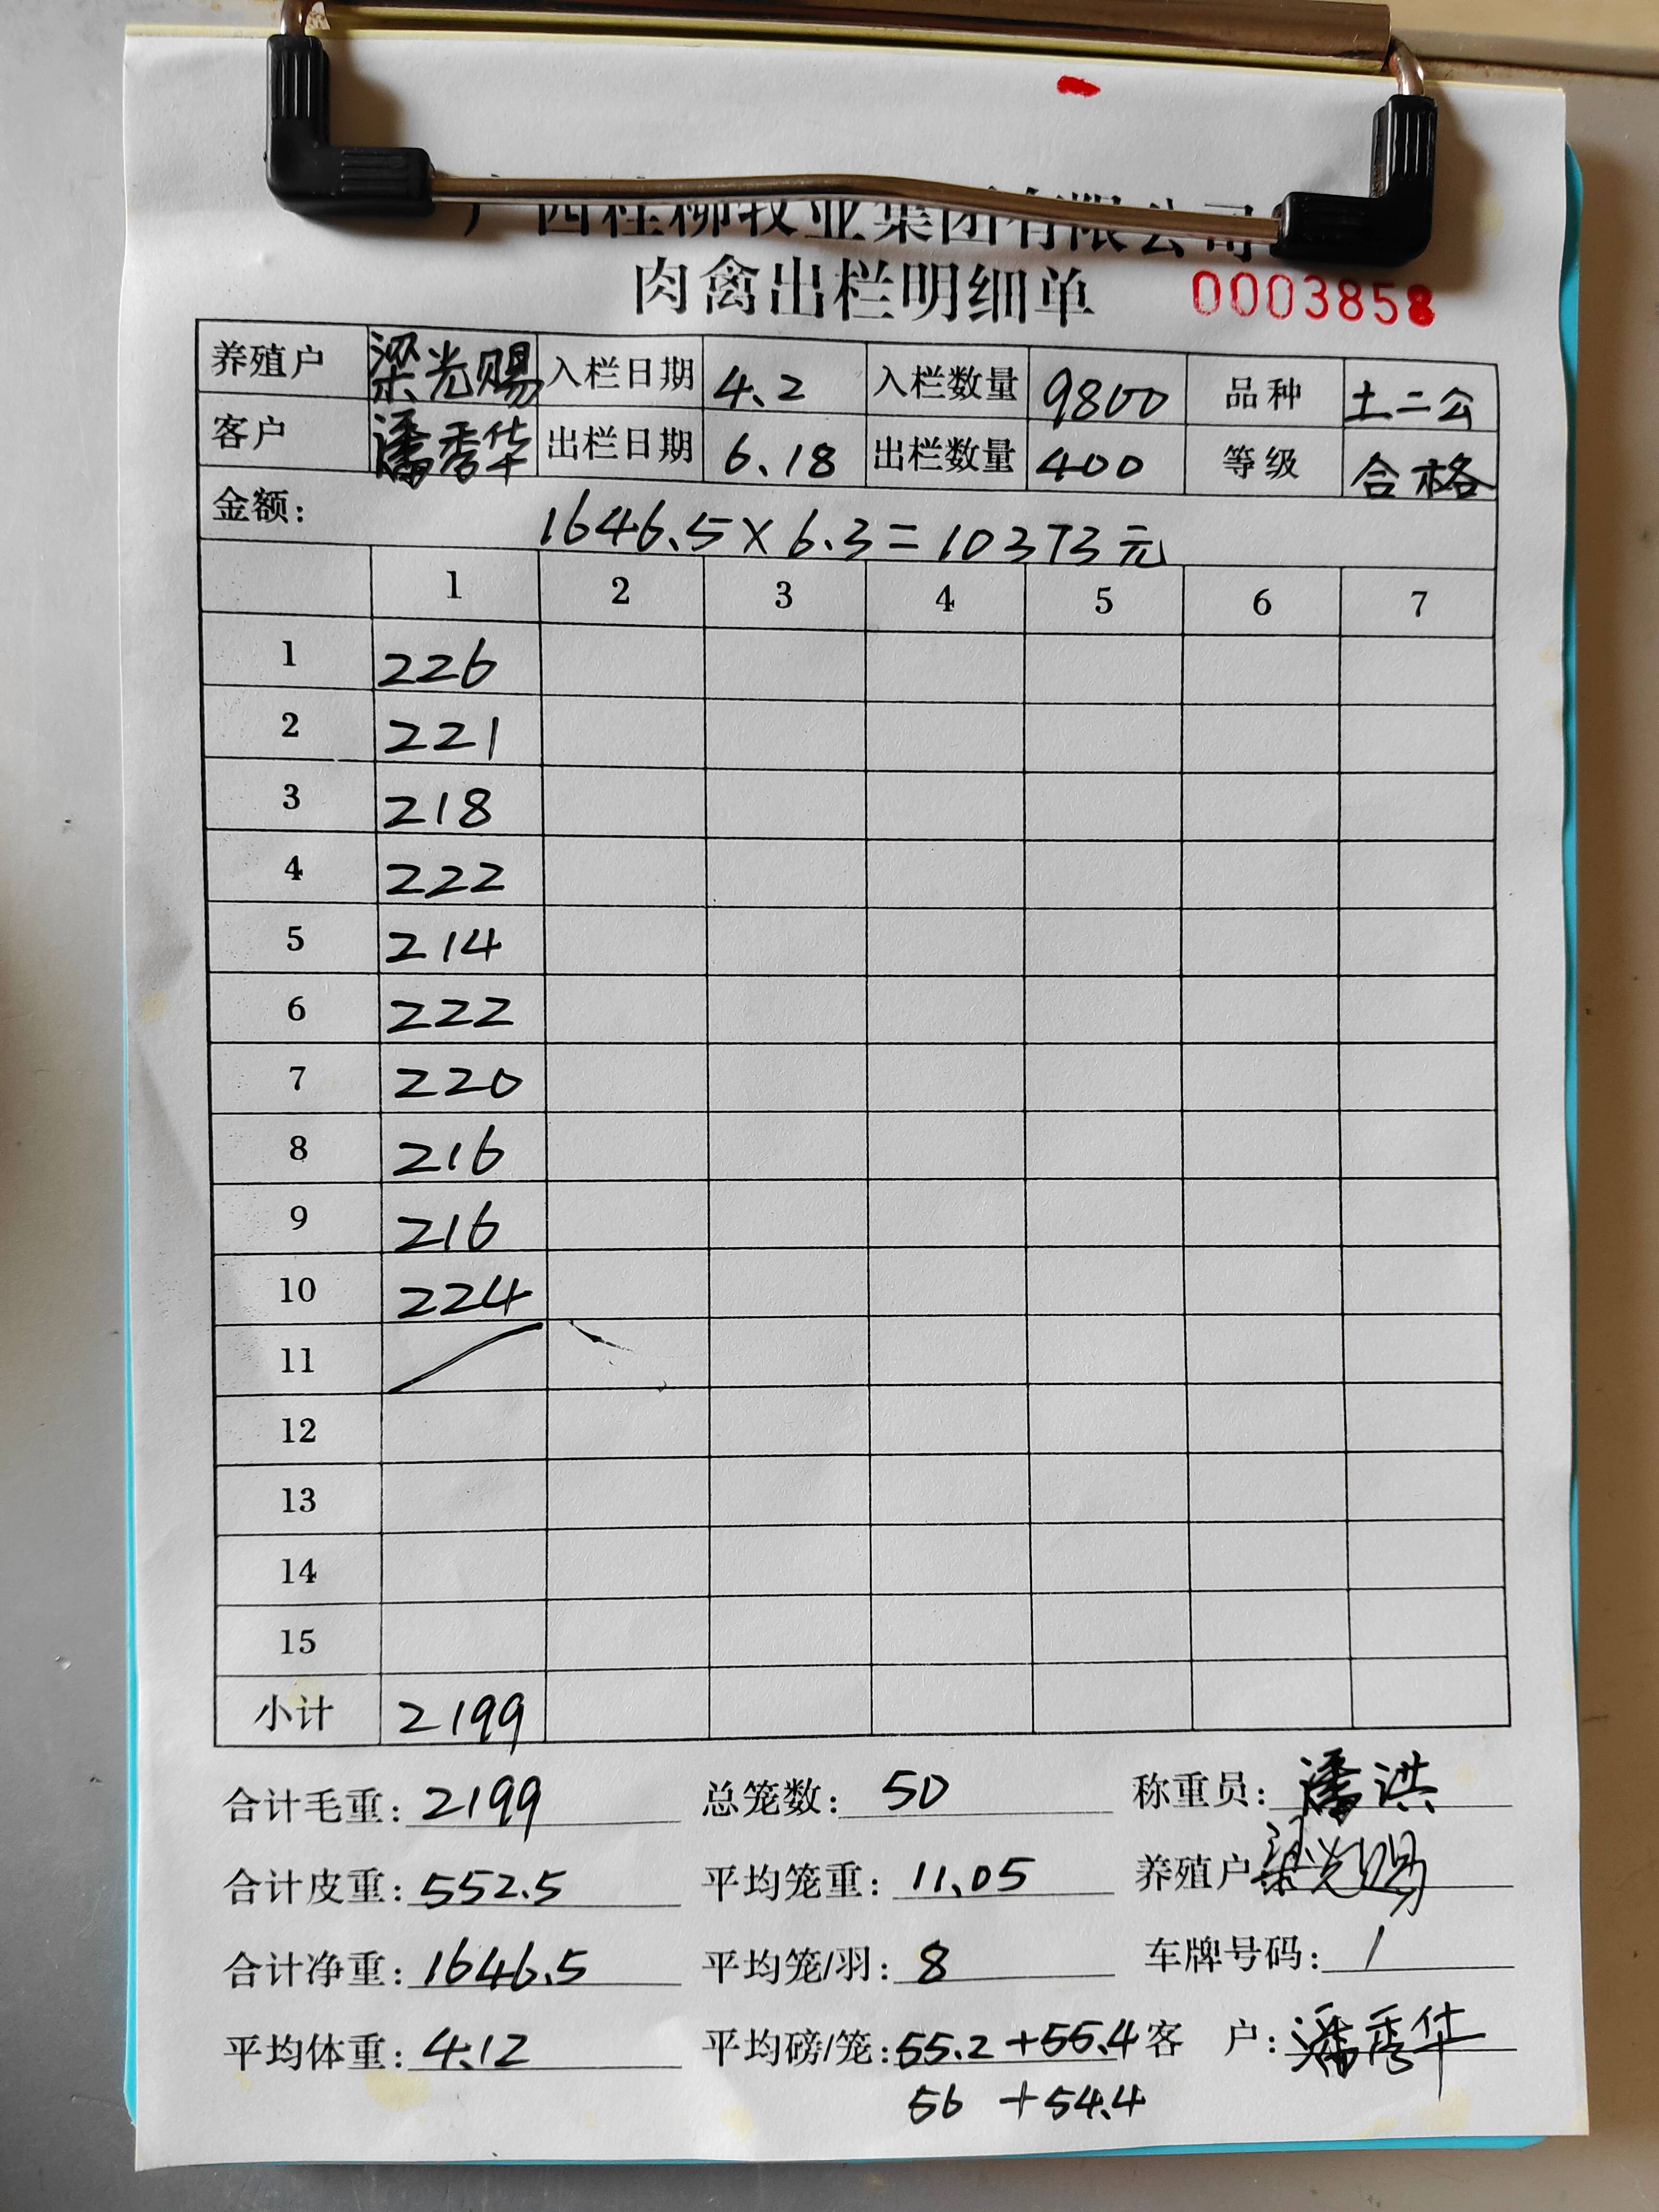 广西桂柳牧业集团有限公司
肉禽出栏明细单 0003858
养殖户 梁光赐 入栏日期 4.2 入栏数量 9800 品种 土二公
客户 潘秀华 出栏日期 6.18 出栏数量 400 等级 合格
金额: 1646.5×6.3=10373元
1 2 3 4 5 6 7
1 226
2 221
3 218
4 222
5 214
6 222
7 220
8 216
9 216
10 224
11
12
13
14
15
小计 2199
合计毛重: 2199 总笼数: 50 称重员: 潘洪
合计皮重: 552.5 平均笼重: 11.05 养殖户 梁光赐
合计净重: 1646.5 平均笼/羽: 8 车牌号码: /
平均体重: 4.12 平均磅/笼: 55.2+55.4 客 户: 潘秀华
56 +54.4